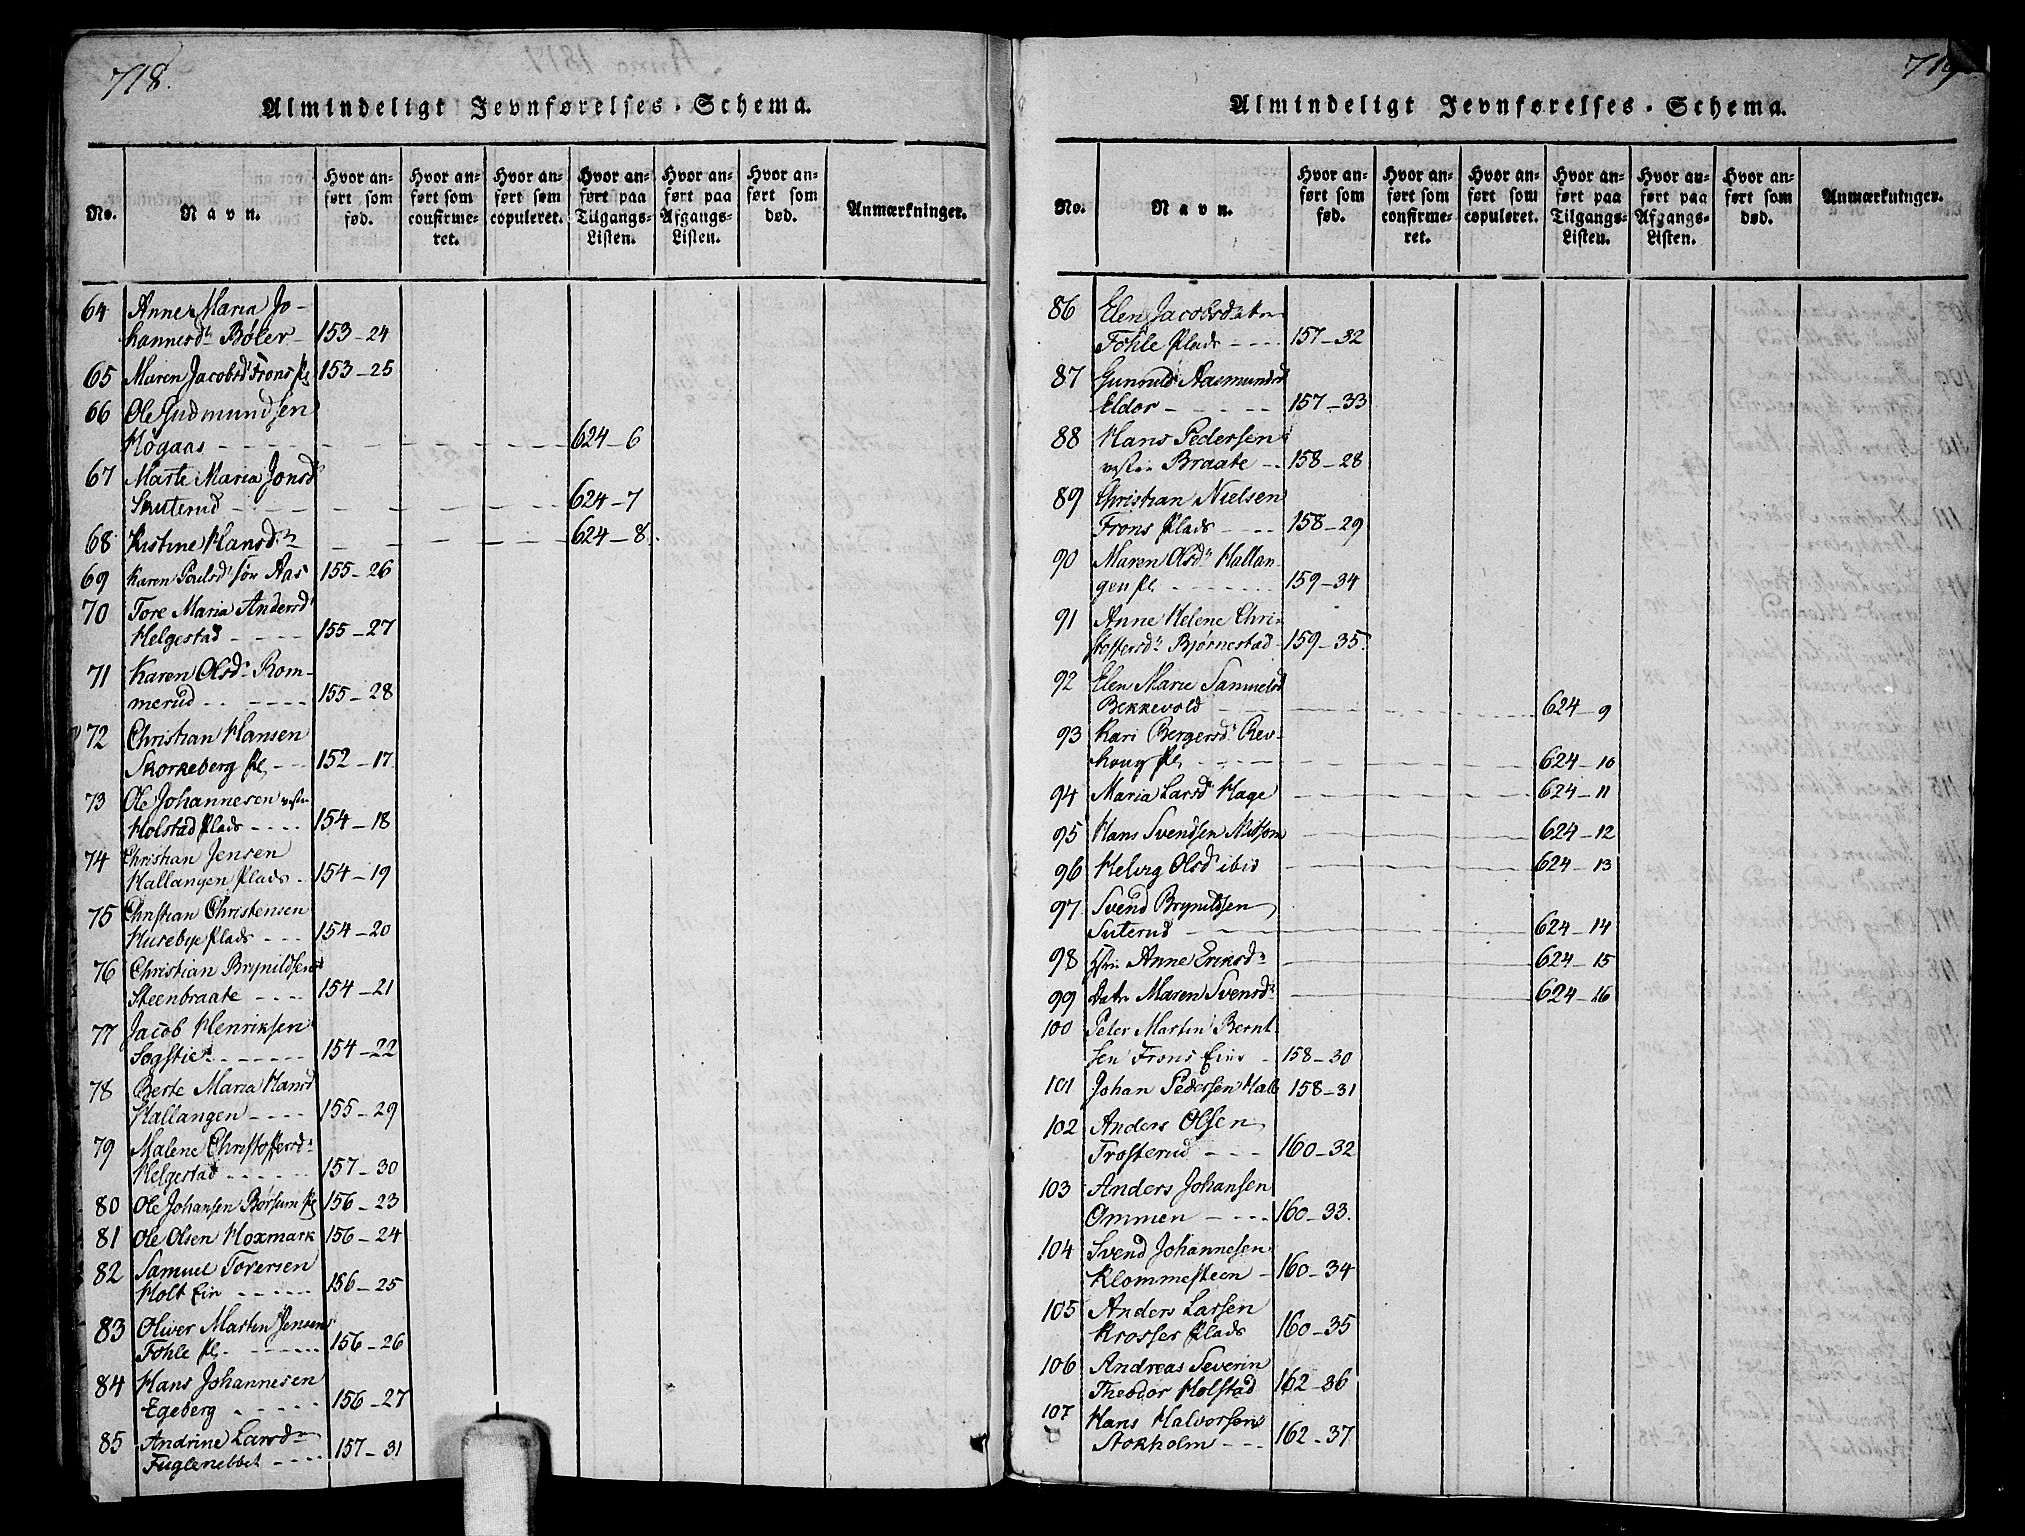 718.
Almindeligt Jevnførelses-Schema.
No.
Navn.
Hvor an-
ført som
fød.
Hvor an-
ført som
confirme-
ret.
Hvor an-
ført som
copuleret.
Hvor an-
ført paa
Tilgangs-
Listen.
Hvor an-
ført paa
Afgangs-
Listen.
Hvor an-
ført som
død.
Anmærkninger.
64 Anne Maria Jo-
hannesdr Bøler 153-24
65 Maren Jacobsdr Frons Pl 153-25
66 Ole Gudmundsen
Høgaas 624-6
67 Marte Maria Jonsd
Sruterud 624-7
68 Kistine Hansdr 624-8.
69 Karen Poulsdr sør Aas 155-26
70 Tore Maria Andersdr
Helgestad 155-27
71 Karen Olsdr Rom-
merud 155-28
72 Christian Hansen
Skorkeberg Pl 152-17
73 Ole Johannesen vestre
Holstad Plads 154-18
74 Christian Jensen
Hallangen Plads 154-19
75 Christian Christensen
Husebye Plads 154-20
76 Christian Brynildsen
Steenbraate 154-21
77 Jacob Henriksen
Sogstie 154-22
78 Berte Maria Hansd
Hallangen 155-29
79 Malene Christoffersdr
Helgestad 157-30
80 Ole Johansen Børsum Pl 156-23
81 Ole Olsen Hoxmark 156-24
82 Samuel Torersen
Holt Eir 156-25
83 Oliver Martin Jensen
Fohle Pl. 156-26
84 Hans Johannesen
Egeberg 156-27
85 Andrine Larsdr
Fuglenebbet 157-31
719
Almindeligt Jevnførelses-Schema.
No.
Navn.
Hvor an-
ført som
fød.
Hvor an-
ført som
confirme-
ret.
Hvor an-
ført som
copuleret.
Hvor an-
ført paa
Tilgangs-
Listen.
Hvor an-
ført paa
Afgangs-
Listen.
Hvor an-
ført som
død.
Anmærkninger.
86 Elen Jacobsdatter
Fohle Plads 157-32
87 Gunnild Aasmundsd
Eldor 157-33
88 Hans Pedersen
vestre Braate 158-28
89 Christian Nielsen
Frons Plads 158-29
90 Maren Olsdr Hallan-
gen Pl 159-34
91 Anne Helene Chri-
stoffersdr Bjørnestad 159-35.
92 Elen Marie Samuelsd
Bekkevold 624-9
93 Kari Bergersdr Rev-
houg Pl 624-10
94 Maria Larsdr Hage 624-11
95 Hans Svendsen Mitsom 624-12
96 Helvig Olsdr ibid 624-13
97 Svend Brynildsen
Suterud 624-14
98 Anne Eriksdr 624-15
99 Datr Maren Svensdr 624-16
100 Peter Martin Bernt-
sen Frons Eier 158-30
101 Johan Pedersen Halle 158-31
102 Anders Olsen
Frosterud 160-32
103 Anders Johansen
Ommen 160-33.
104 Svend Johannesen
Klommesteen 160-34
105 Anders Larsen
Krosser Plads 160-35
106 Andreas Severin
Theodor Holstad 162-36
107 Hans Halvorsen
Stokholm 162-37